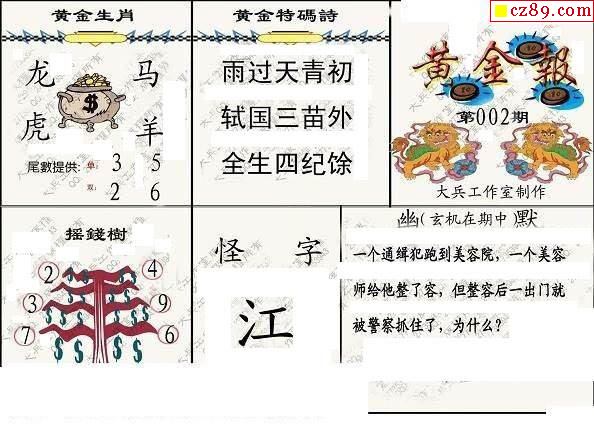 cz89.com
黄金生肖
龙 马
虎 羊
尾數提供: 单: 3 5
双: 2 6
黄金特碼詩
雨过天青初
轼国三苗外
全生四纪馀
黄金報
第002期
大兵工作室制作
摇錢樹
2 4
3 9
7 6
怪 字
江
幽(玄机在期中)默
一个通缉犯跑到美容院，一个美容
师给他整了容，但整容后一出门就
被警察抓住了，为什么?